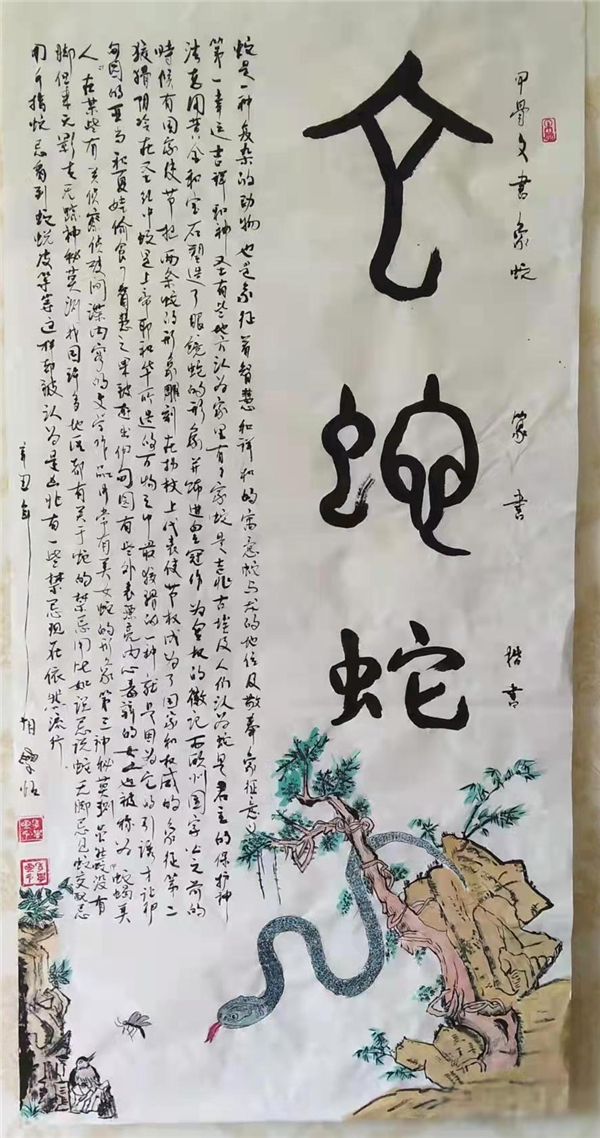 甲骨文書象蛇
篆書
楷書
它
蛇
蛇
蛇是一种复杂的动物也是象征着智慧和祥和的寓意蛇与龙的地位及敬奉象征意义
第一幸运吉祥和神圣有些地方认为家里有了家蛇是吉兆古埃及人们认为蛇是君主的保护神
法老用黄金和宝石塑造了眼镜蛇的形象并饰进皇冠作为皇权的徽记而欧州国家公元前的
時候有国家使节把两条蛇的形象雕刻在拐杖上代表使节权成为了国家和权威的象征第二
狡猾阴冷在圣经中蛇是上帝耶和华所造的万物之中最狡猾的一种就是因为它的引诱才让
甸园的亚当和夏娃偷食了智慧之果被逐出伊甸园有些外表漂亮内心毒辣的女人也被称为“蛇蝎美
人”在某些有关侦察侦破间谍内容的文学作品中常有美女蛇的形象第三神秘莫测虽然蛇没有
脚但来无影去无踪神秘莫测我国许多地区都有关于蛇的禁忌用比如说忌说蛇无脚忌见蛇交配忌
用手指蛇忌看到蛇蜕皮等等这样都被认为是凶兆有一些禁忌现在依然流行
辛丑年